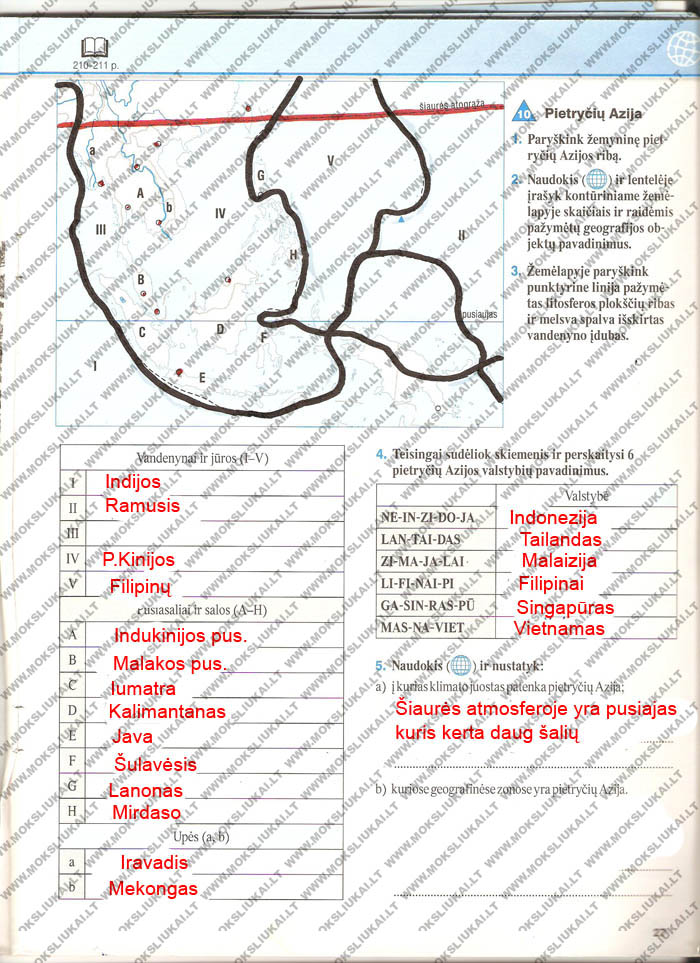 210-211 p.
šiaurės atogrąža
pusiaujas
a
A
b
III
IV
G
V
II
H
B
C
D
F
I
E
10 Pietryčių Azija
1. Paryškink žemyninę piet-
ryčių Azijos ribą.
2. Naudokis ( ) ir lentelėje
įrašyk kontūriniame žemė-
lapyje skaičiais ir raidėmis
pažymėtų geografijos ob-
jektų pavadinimus.
3. Žemėlapyje paryškink
punktyrine linija pažymė-
tas litosferos plokščių ribas
ir melsva spalva išskirtas
vandenyno įdubas.
Vandenynai ir jūros (I–V)
I Indijos
II Ramusis
III
IV P.Kinijos
V Filipinų
Pusiasaliai ir salos (A–H)
A Indukinijos pus.
B Malakos pus.
C Iumatra
D Kalimantanas
E Java
F Šulavėsis
G Lanonas
H Mirdaso
Upės (a, b)
a Iravadis
b Mekongas
4. Teisingai sudėliok skiemenis ir perskaitysi 6
pietryčių Azijos valstybių pavadinimus.
Valstybė
NE-IN-ZI-DO-JA Indonezija
LAN-TAI-DAS Tailandas
ZI-MA-JA-LAI Malaizija
LI-FI-NAI-PI Filipinai
GA-SIN-RAS-PŪ Singapūras
MAS-NA-VIET Vietnamas
5. Naudokis ( ) ir nustatyk:
a) į kurias klimato juostas patenka pietryčių Azija;
Šiaurės atmosferoje yra pusiajas
kuris kerta daug šalių
b) kuriose geografinėse zonose yra pietryčių Azija.
WWW.MOKSLIUKAI.LT